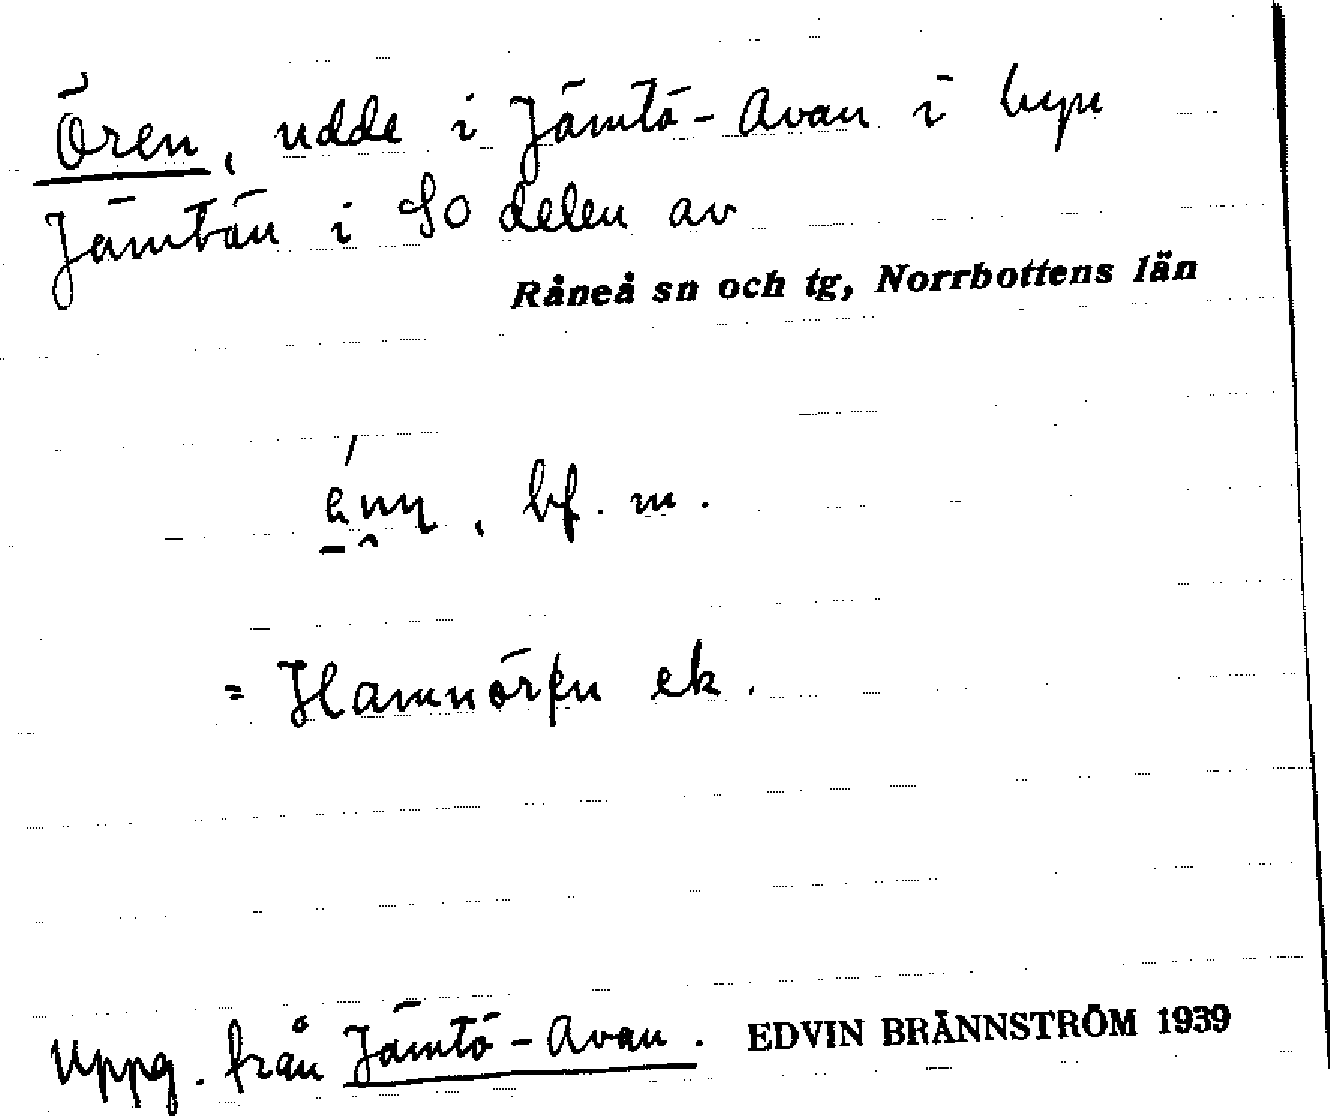 Ören, udde i Jämtö-Avan i byn
Jämtön i SO delen av
Råneå sn och tg, Norrbottens län
bf. m.
= Hamnören ek.
Uppg. från Jämtö-Avan. EDVIN BRÄNNSTRÖM 1939